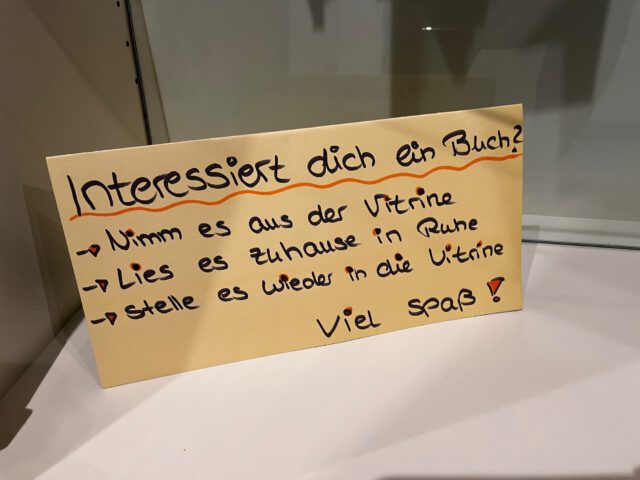 Interessiert dich ein Buch?
→ Nimm es aus der Vitrine
→ Lies es zuhause in Ruhe
→ Stelle es wieder in die Vitrine
Viel Spaß!